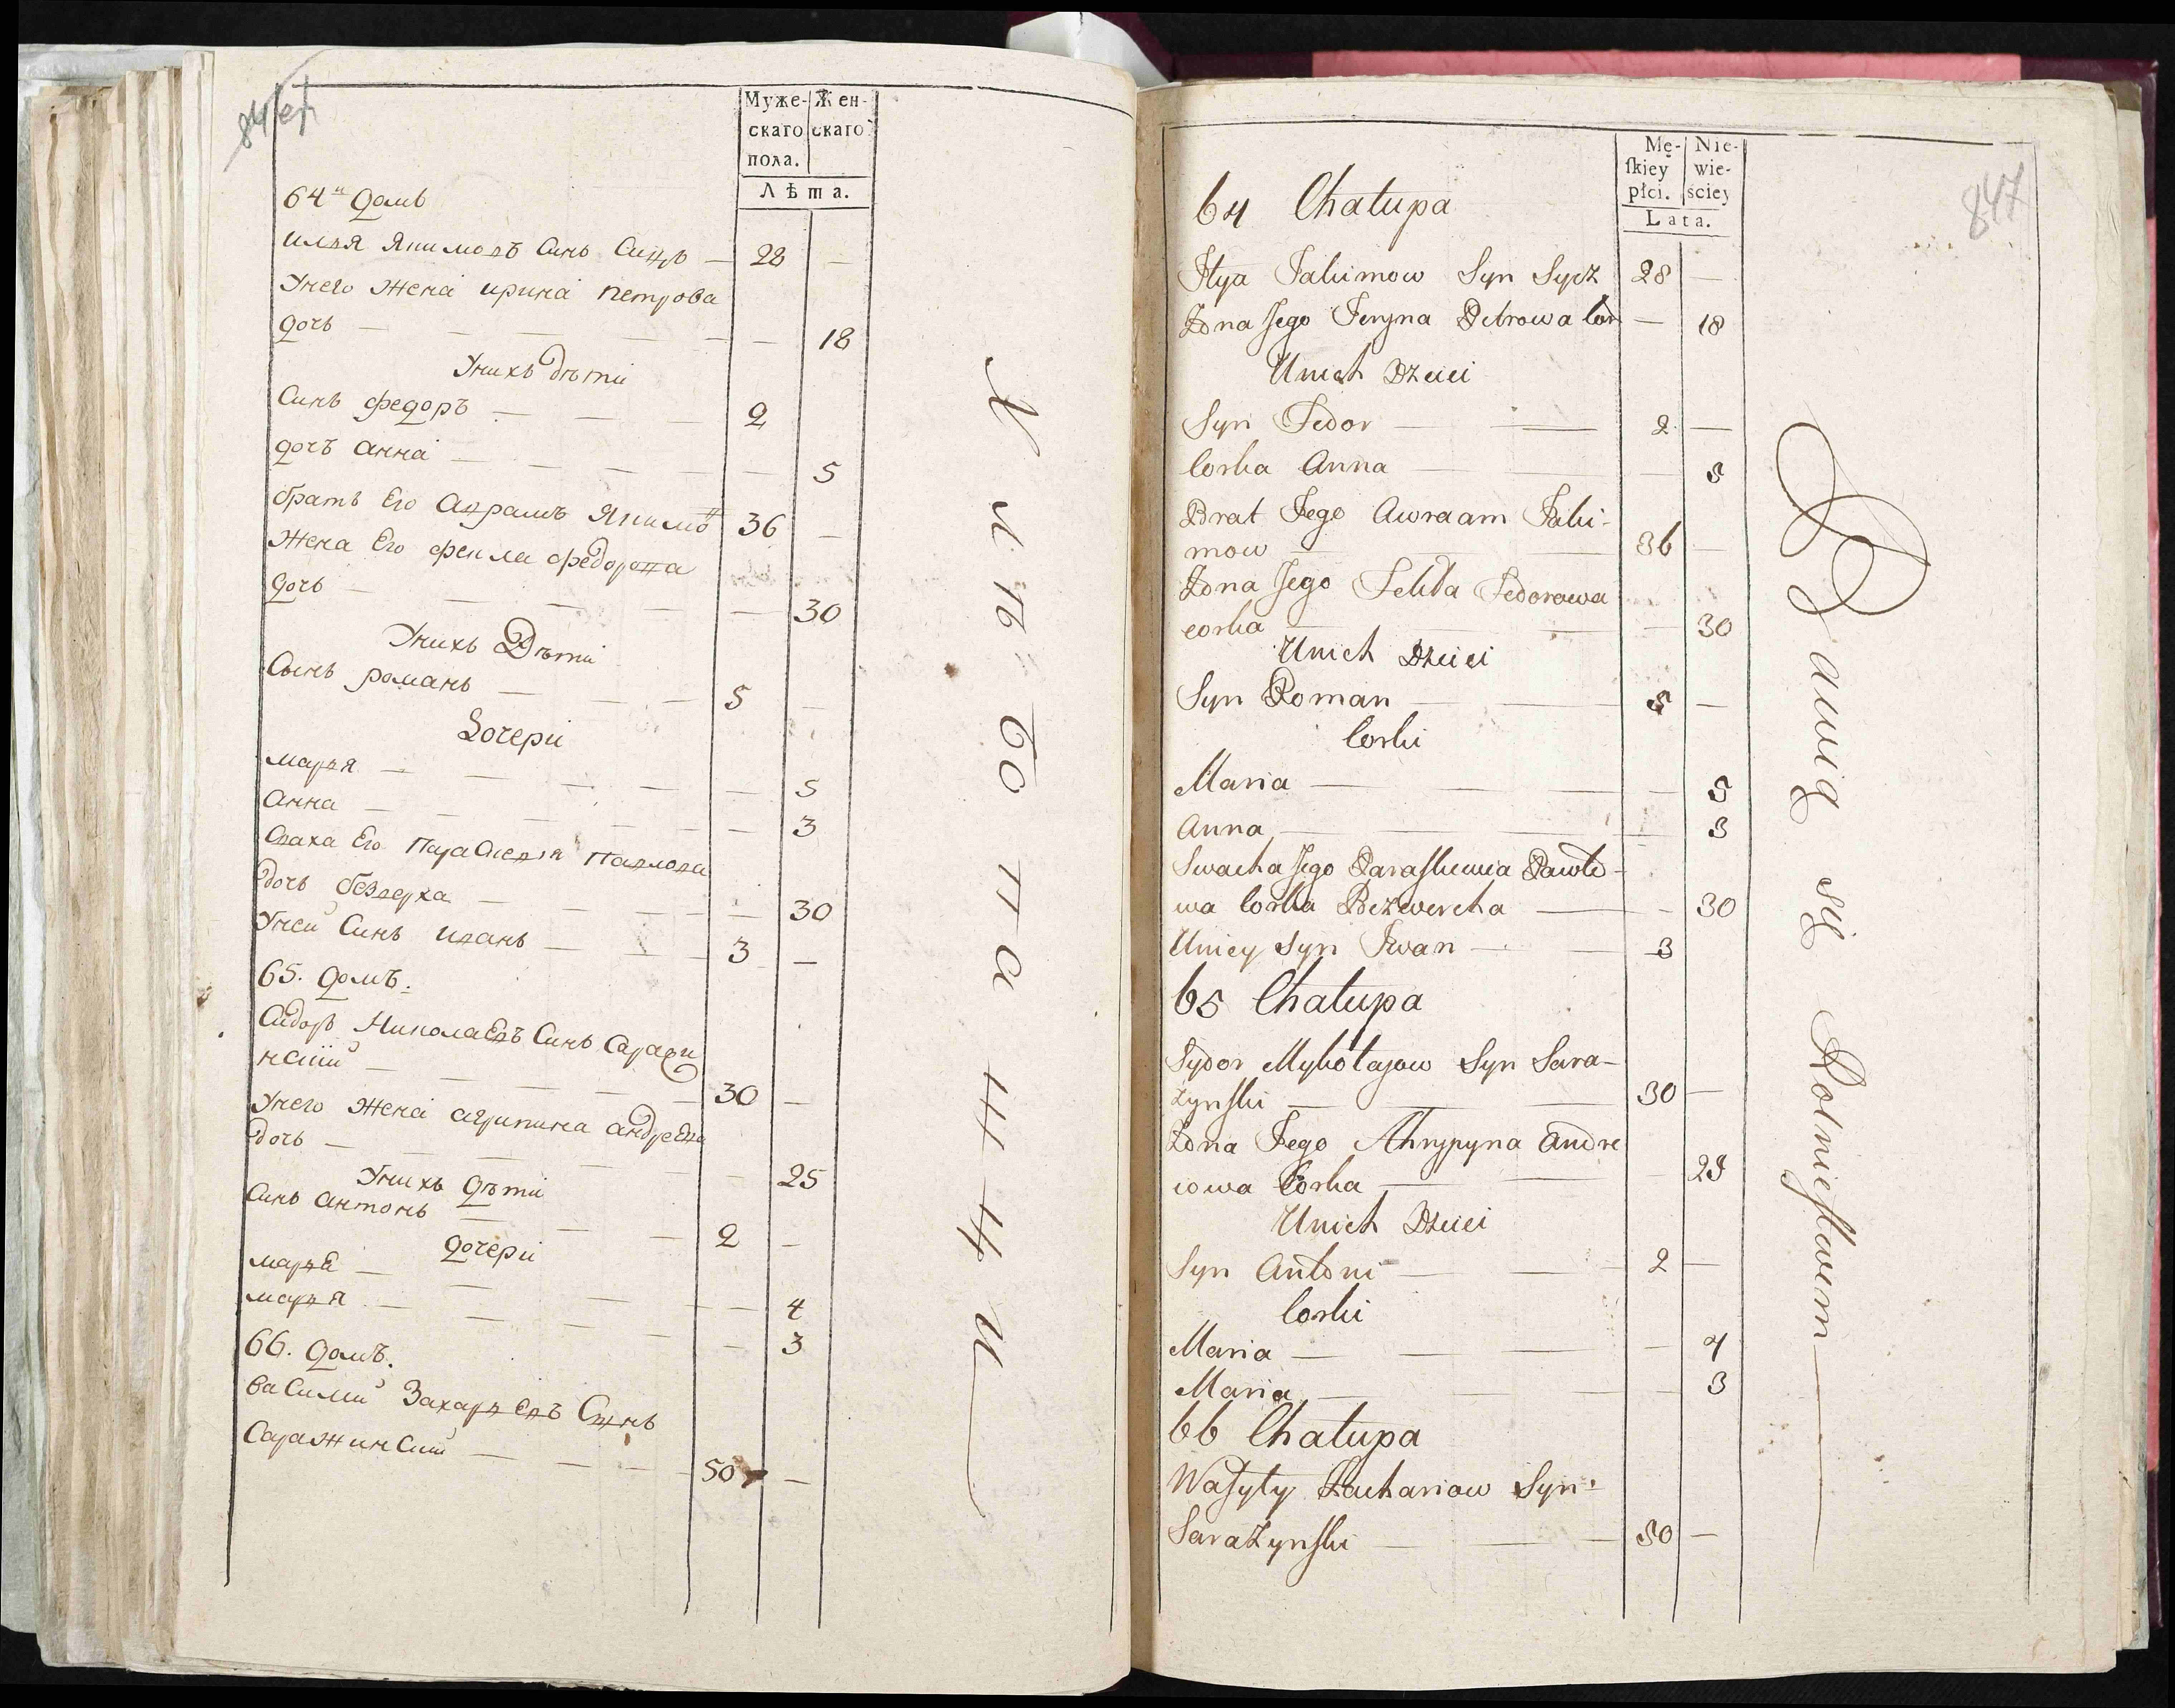 Муже-
скаго
пола.
Жен-
скаго
Лѣта.
64й домъ
илвя Якимовъ Синъ Сичъ — 28 —
Унего жена ирина петрова
дочь — — 18
Унихъ дѣти
Синъ федоръ — 2
дочъ анна — — 5
братъ Его Авраамъ Якимов 36 —
жена Его фекла федорова
дочь — — 30
Унихъ Дѣти
Сынъ романъ — 5 —
Дочери
марвя — — 5
анна — — 3
Сваха Его Парасковія Павлова
дочь безверха — — 30
Уней Синъ иванъ — 3 —
65. домъ.
Сидоръ Николаевъ Синъ Саражи
нский — 30 —
Унего жена агрипина андреева
дочь — — 25
Унихъ дѣти
Синъ антонъ — 2 —
дочери
марвя — — 4
марвя — — 3
66. домъ.
василий Захарвевъ Сынъ
Саражинский — 50 —
Mę-
skiey
płci.
Nie-
wie-
sciey
Lata.
847
64 Chałupa
Ilya Jakimow Syn Sycz 28 —
Żona Jego Jeryna Petrowa Cor — 18
Unich Dzieci
Syn Fedor — 2 —
Corka Anna — — 5
Brat Jego Awraam Jaki-
mow — 36 —
Żona Jego Fekla Fedorowa
corka — — 30
Unich Dzieci
Syn Roman — 5 —
Corki
Maria — — 5
Anna — — 3
Swacha Jego Paraskewia Pawlo-
wa Corka Bezwercha — — 30
Uniey Syn Iwan — 3
65 Chałupa
Sydor Mykołajow Syn Sara-
żynski — 30 —
Żona Jego Ahrypyna Andre
iowa Corka — — 25
Unich Dzieci
Syn Antoni — 2 —
Corki
Maria — — 4
Maria — — 3
66 Chałupa
Wasyly Zachariow Syn
Sarażynski — 50 —